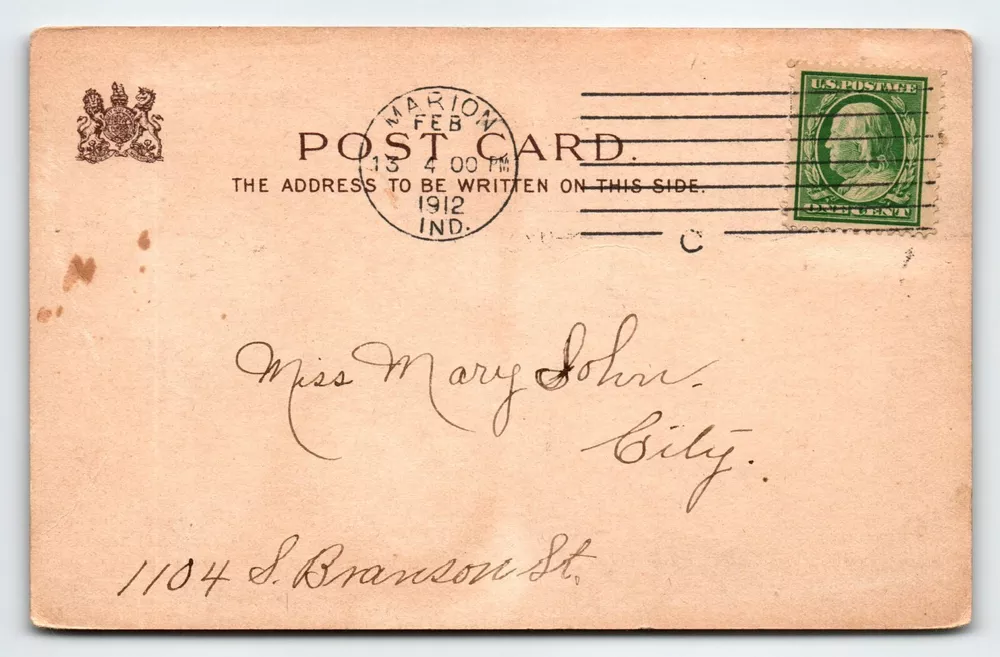 MARION
FEB
13 4 00 PM
1912
IND.
U.S. POSTAGE
ONE CENT
POST CARD.
THE ADDRESS TO BE WRITTEN ON THIS SIDE.
C
Miss Mary John.
City.
1104 S. Branson St.